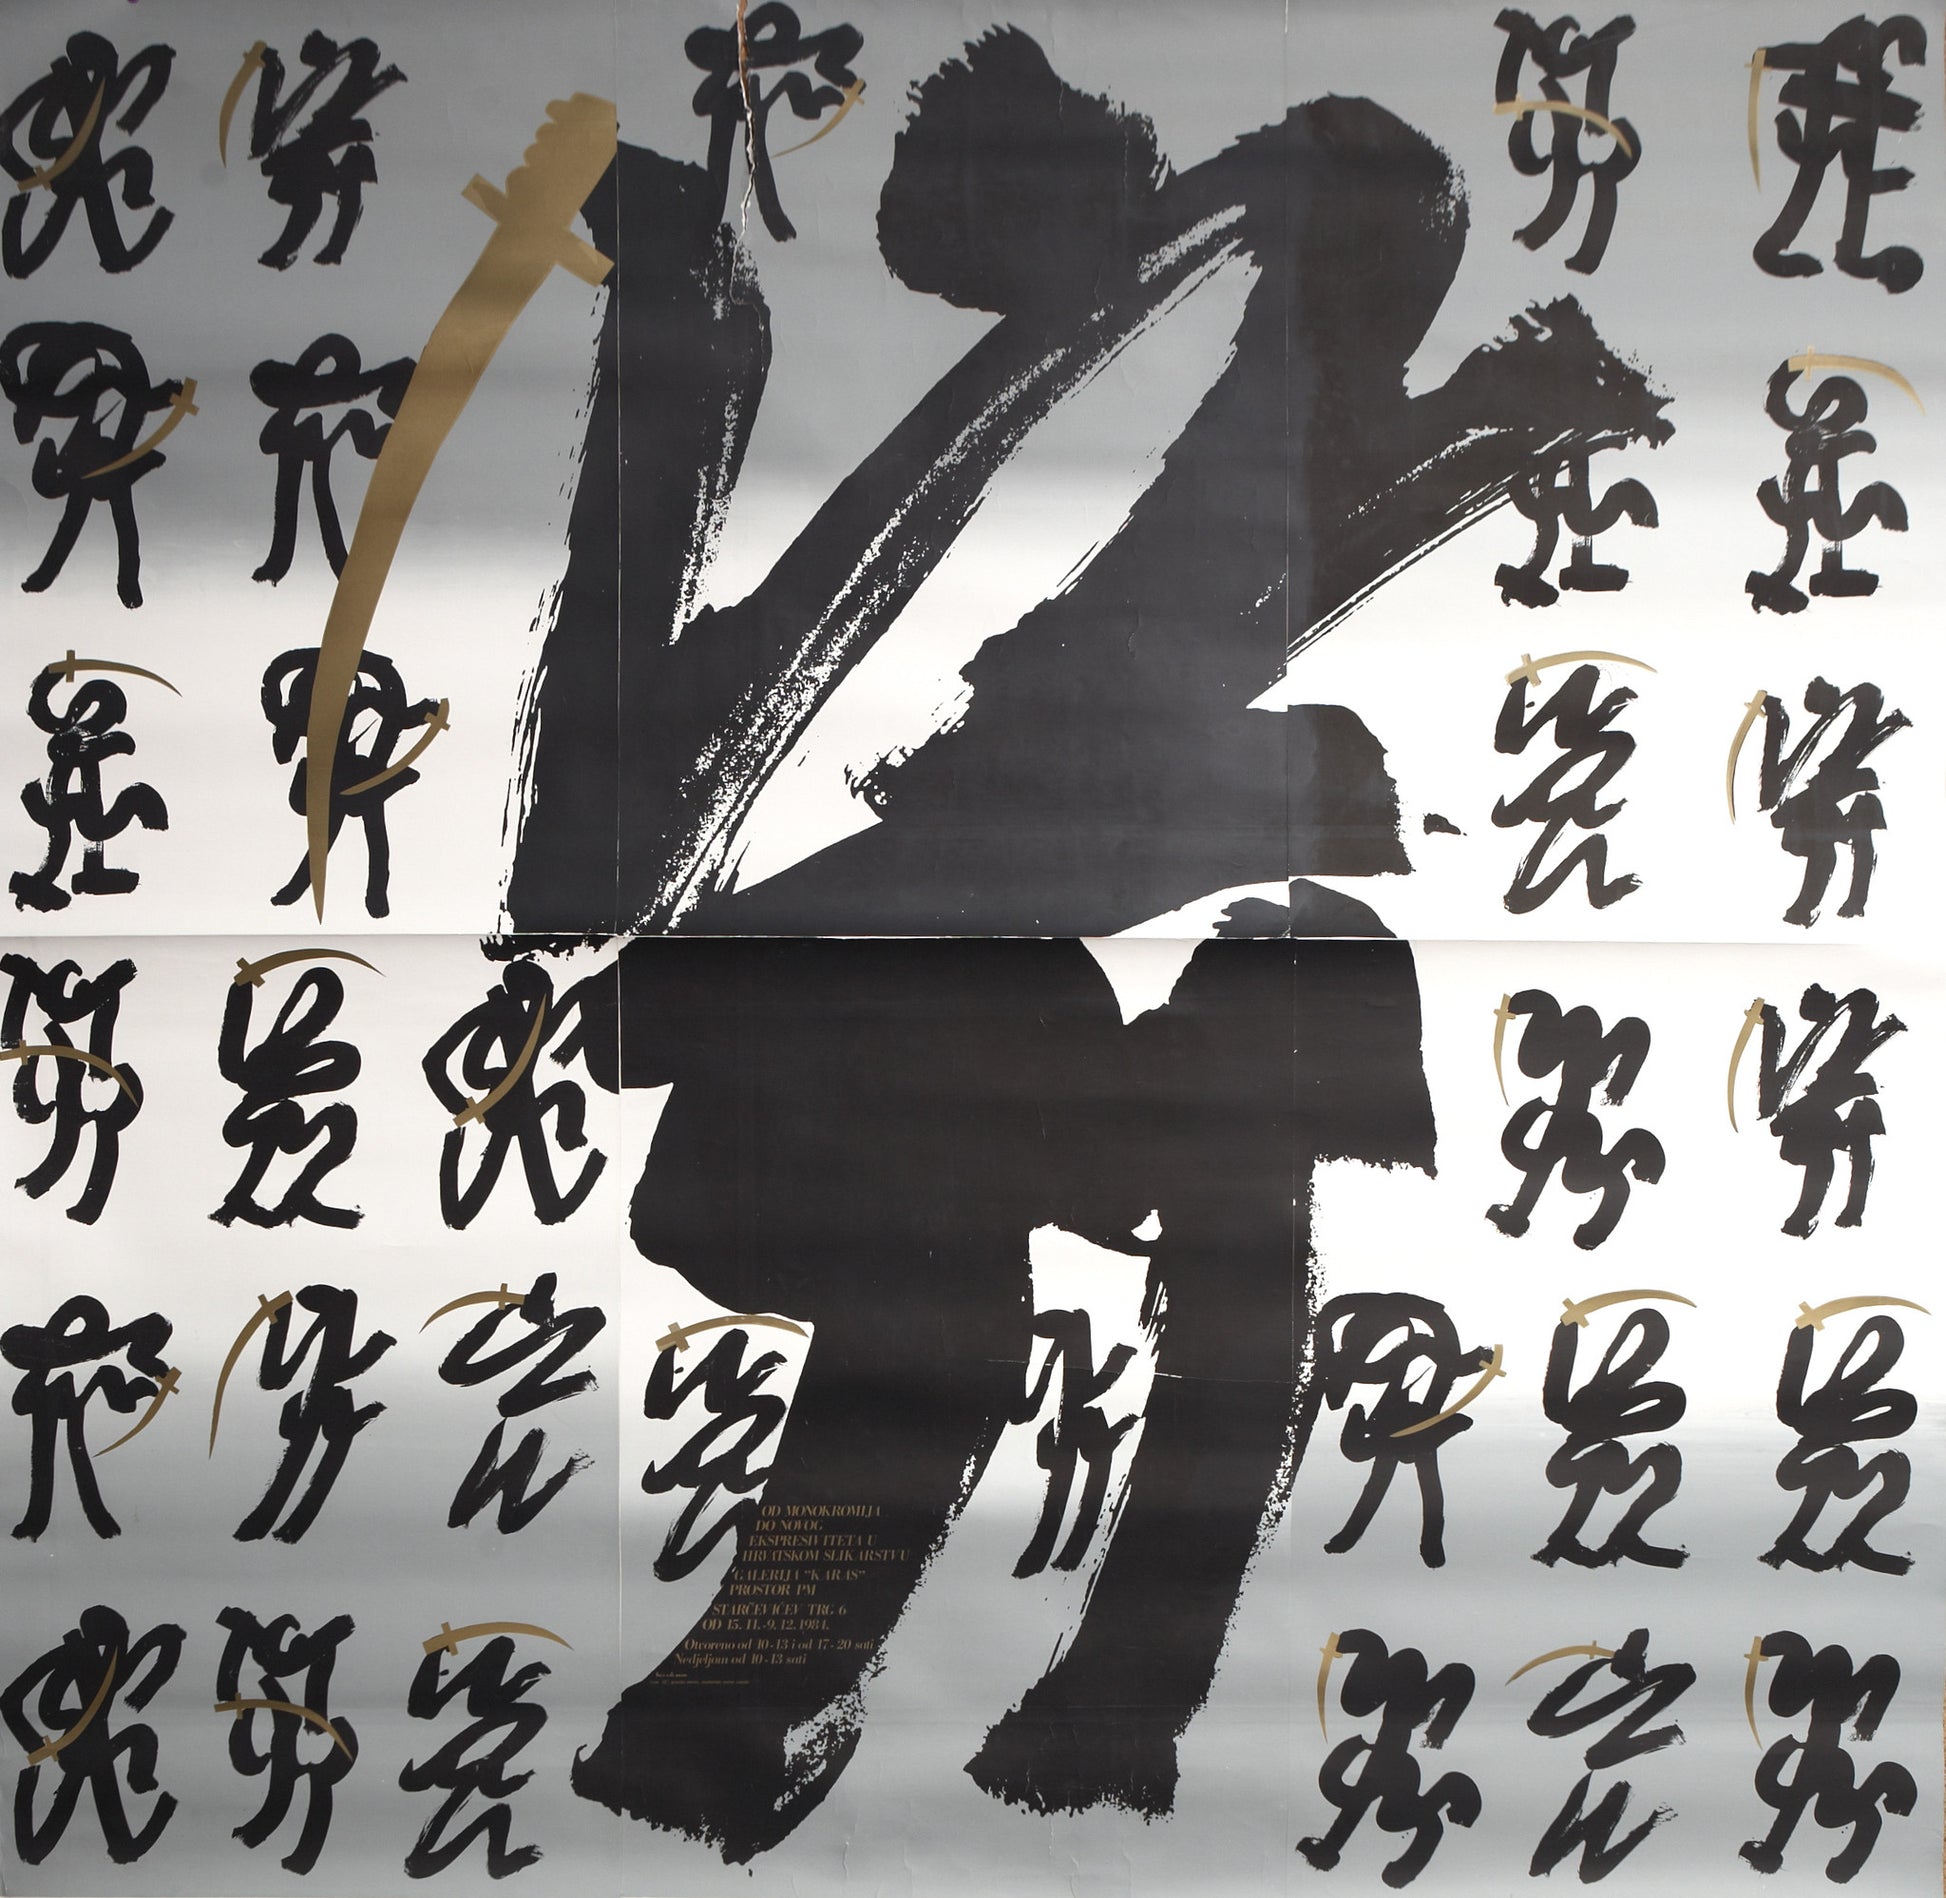 OD MONOKROMIJA
DO NOVOG
EKSPRESIVITETA U
HRVATSKOM SLIKARSTVU
GALERIJA "KARAS"
PROSTOR PM
STARČEVIĆEV TRG 6
OD 15. 11.-9. 12. 1984.
Otvoreno od 10-13 i od 17-20 sati
Nedjeljom od 10-13 sati